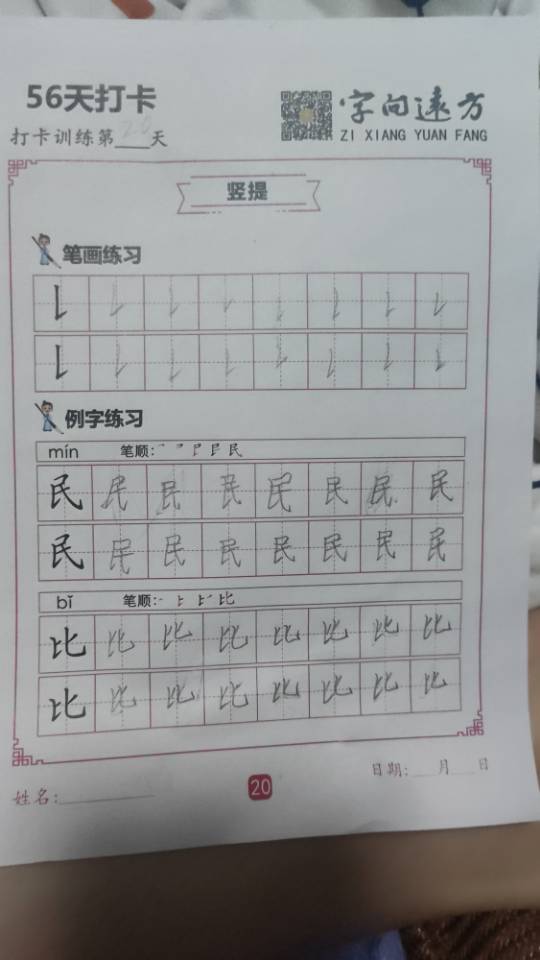 56天打卡
字向远方
打卡训练第20天
ZI XIANG YUAN FANG
竖提
笔画练习
例字练习
mín 笔顺:
民 民 民 民 民 民 民 民
民 民 民 民 民 民 民 民
bǐ 笔顺:
比 比 比 比 比 比 比 比
比 比 比 比 比 比 比 比
日期:___月___日
姓名:
20